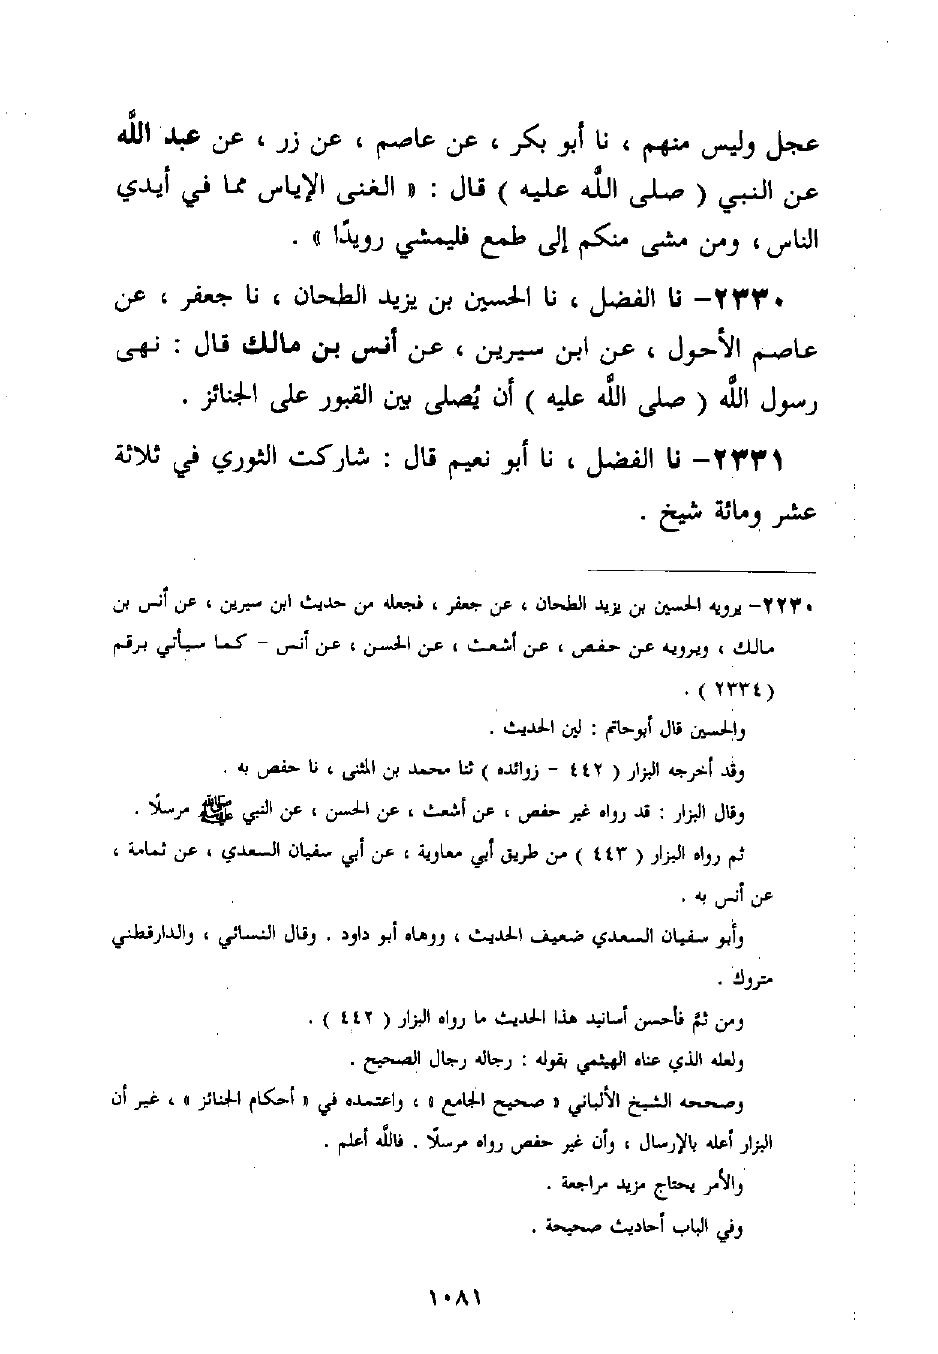 عجل وليس منهم ، نا أبو بكر ، عن عاصم ، عن زر ، عن عبد الله
عن النبي ( صلى الله عليه ) قال : « الغنى الإياس مما في أيدي
الناس ، ومن مشى منكم إلى طمع فليمشي رويدًا » .
٢٣٣٠- نا الفضل ، نا الحسين بن يزيد الطحان ، نا جعفر ، عن
عاصم الأحول ، عن ابن سيرين ، عن أنس بن مالك قال : نهى
رسول الله ( صلى الله عليه ) أن يُصلى بين القبور على الجنائز .
٢٣٣١- نا الفضل ، نا أبو نعيم قال : شاركت الثوري في ثلاثة
عشر ومائة شيخ .
٢٢٣٠- يرويه الحسين بن يزيد الطحان ، عن جعفر ، فجعله من حديث ابن سيرين ، عن أنس بن
مالك ، ويرويه عن حفص ، عن أشعث ، عن الحسن ، عن أنس - كما سيأتي برقم
( ٢٣٣٤ ) .
والحسين قال أبوحاتم : لين الحديث .
وقد أخرجه البزار ( ٤٤٢ - زوائده ) ثنا محمد بن المثنى ، نا حفص به .
وقال البزار : قد رواه غير حفص ، عن أشعث ، عن الحسن ، عن النبي ﷺ مرسلًا .
ثم رواه البزار ( ٤٤٣ ) من طريق أبي معاوية ، عن أبي سفيان السعدي ، عن ثمامة ،
عن أنس به .
وأبو سفيان السعدي ضعيف الحديث ، ووهاه أبو داود . وقال النسائي ، والدارقطني
متروك .
ومن ثمَّ فأحسن أسانيد هذا الحديث ما رواه البزار ( ٤٤٢ ) .
ولعله الذي عناه الهيثمي بقوله : رجاله رجال الصحيح .
وصححه الشيخ الألباني « صحيح الجامع » ، واعتمده في « أحكام الجنائز » ، غير أن
البزار أعله بالإرسال ، وأن غير حفص رواه مرسلًا . فالله أعلم .
والأمر يحتاج مزيد مراجعة .
وفي الباب أحاديث صحيحة .
١٠٨١